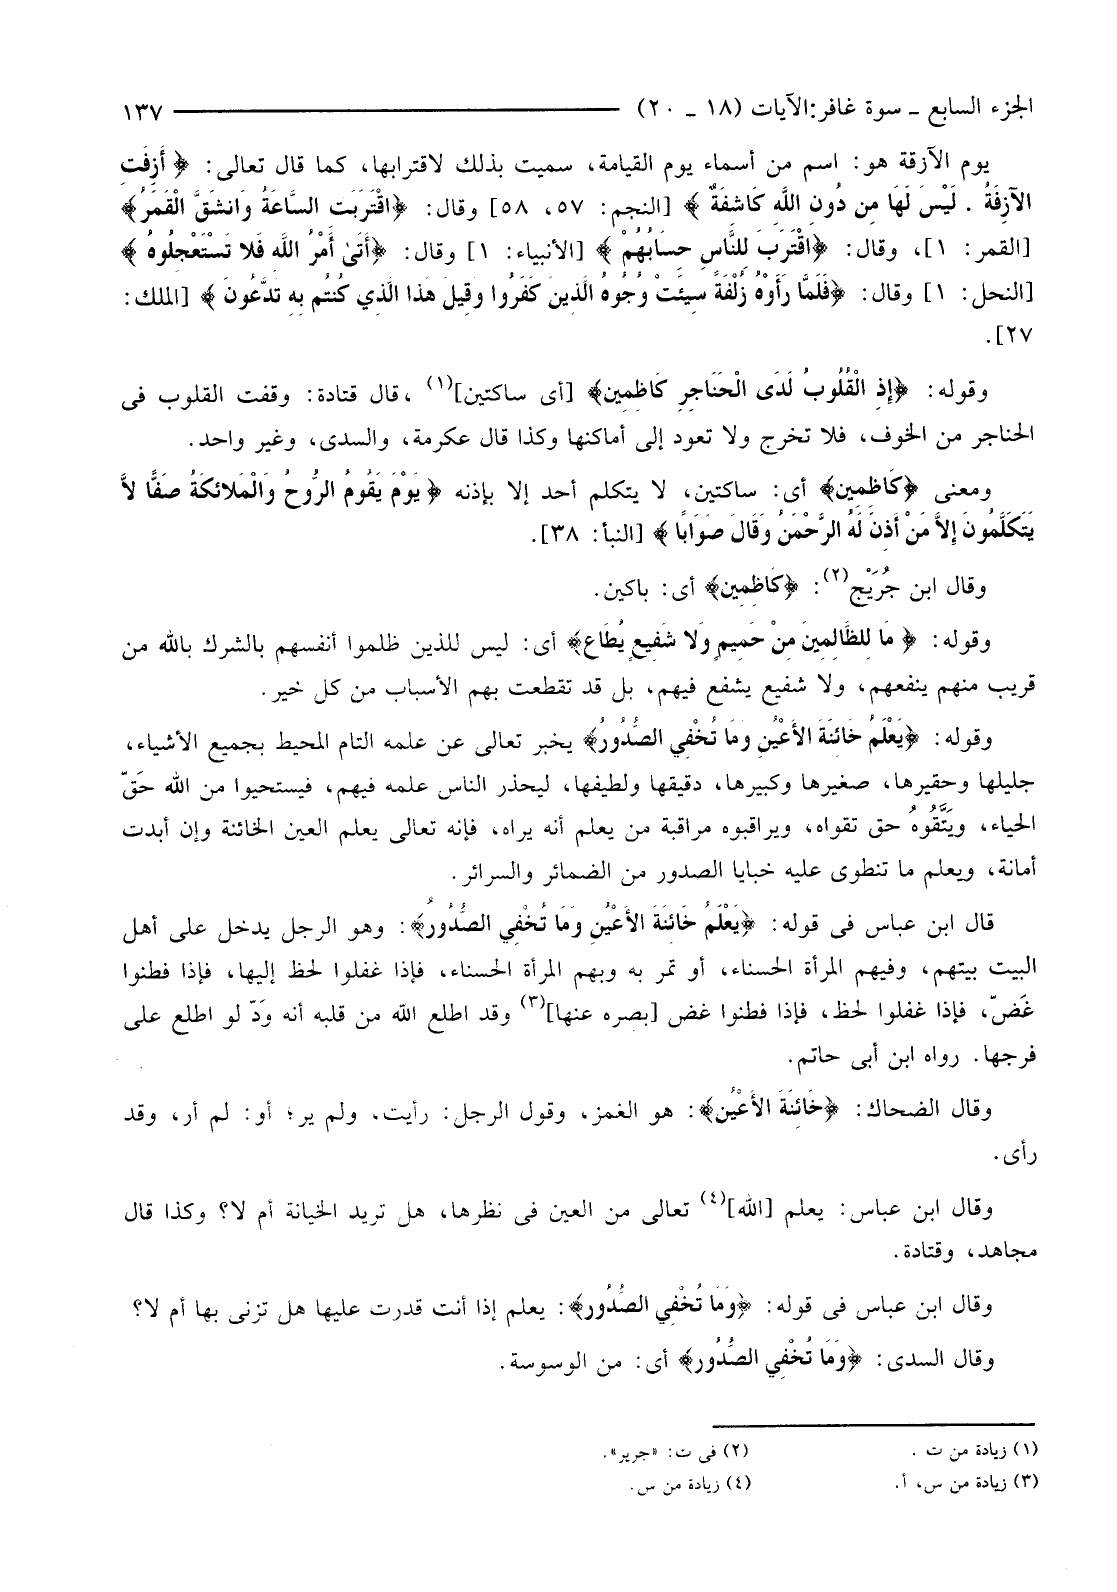 الجزء السابع ـ سوة غافر:الآيات (١٨ ـ ٢٠) ١٣٧
يوم الآزفة هو: اسم من أسماء يوم القيامة، سميت بذلك لاقترابها، كما قال تعالى: ﴿ أَزِفَتِ
الآزِفَةُ . لَيْسَ لَهَا مِن دُونِ اللَّهِ كَاشِفَةٌ ﴾ [النجم: ٥٧، ٥٨] وقال: ﴿اقْتَرَبَتِ السَّاعَةُ وَانشَقَّ الْقَمَرُ﴾
[القمر: ١]، وقال: ﴿اقْتَرَبَ لِلنَّاسِ حِسَابُهُمْ ﴾ [الأنبياء: ١] وقال: ﴿أَتَىٰ أَمْرُ اللَّهِ فَلا تَسْتَعْجِلُوهُ ﴾
[النحل: ١] وقال: ﴿فَلَمَّا رَأَوْهُ زُلْفَةً سِيئَتْ وُجُوهُ الَّذِينَ كَفَرُوا وَقِيلَ هَذَا الَّذِي كُنتُم بِهِ تَدَّعُونَ ﴾ [الملك:
٢٧].
وقوله: ﴿إِذِ الْقُلُوبُ لَدَى الْحَنَاجِرِ كَاظِمِين﴾ [أى ساكتين](١) ،قال قتادة: وقفت القلوب فى
الحناجر من الخوف، فلا تخرج ولا تعود إلى أماكنها وكذا قال عكرمة، والسدى، وغير واحد.
ومعنى ﴿كَاظِمِين﴾ أى: ساكتين، لا يتكلم أحد إلا بإذنه ﴿ يَوْمَ يَقُومُ الرُّوحُ وَالْمَلائِكَةُ صَفًّا لاَّ
يَتَكَلَّمُونَ إِلاَّ مَنْ أَذِنَ لَهُ الرَّحْمَنُ وَقَالَ صَوَابًا ﴾ [النبأ: ٣٨].
وقال ابن جُرَيْج(٢): ﴿كَاظِمِين﴾ أى: باكين.
وقوله: ﴿ مَا لِلظَّالِمِينَ مِنْ حَمِيمٍ وَلا شَفِيعٍ يُطَاع﴾ أى: ليس للذين ظلموا أنفسهم بالشرك بالله من
قريب منهم ينفعهم، ولا شفيع يشفع فيهم، بل قد تقطعت بهم الأسباب من كل خير.
وقوله: ﴿يَعْلَمُ خَائِنَةَ الأَعْيُنِ وَمَا تُخْفِي الصُّدُورُ﴾ يخبر تعالى عن علمه التام المحيط بجميع الأشياء،
جليلها وحقيرها، صغيرها وكبيرها، دقيقها ولطيفها، ليحذر الناس علمه فيهم، فيستحيوا من الله حَقّ
الحياء، ويَتَّقُوهُ حق تقواه، ويراقبوه مراقبة من يعلم أنه يراه، فإنه تعالى يعلم العين الخائنة وإن أبدت
أمانة، ويعلم ما تنطوى عليه خبايا الصدور من الضمائر والسرائر.
قال ابن عباس فى قوله: ﴿يَعْلَمُ خَائِنَةَ الأَعْيُنِ وَمَا تُخْفِي الصُّدُورُ﴾: وهو الرجل يدخل على أهل
البيت بيتهم، وفيهم المرأة الحسناء، أو تمر به وبهم المرأة الحسناء، فإذا غفلوا لحظ إليها، فإذا فطنوا
غَضّ، فإذا غفلوا لحظ، فإذا فطنوا غض [بصره عنها](٣) وقد اطلع الله من قلبه أنه وَدّ لو اطلع على
فرجها. رواه ابن أبى حاتم.
وقال الضحاك: ﴿خَائِنَةَ الأَعْيُن﴾: هو الغمز، وقول الرجل: رأيت، ولم ير؛ أو: لم أر، وقد
رأى.
وقال ابن عباس: يعلم [الله](٤) تعالى من العين فى نظرها، هل تريد الخيانة أم لا؟ وكذا قال
مجاهد، وقتادة.
وقال ابن عباس فى قوله: ﴿وَمَا تُخْفِي الصُّدُور﴾: يعلم إذا أنت قدرت عليها هل تزنى بها أم لا؟
وقال السدى: ﴿وَمَا تُخْفِي الصُّدُور﴾ أى: من الوسوسة.
(١) زيادة من ت . (٢) فى ت: «جرير».
(٣) زيادة من س، أ. (٤) زيادة من س.